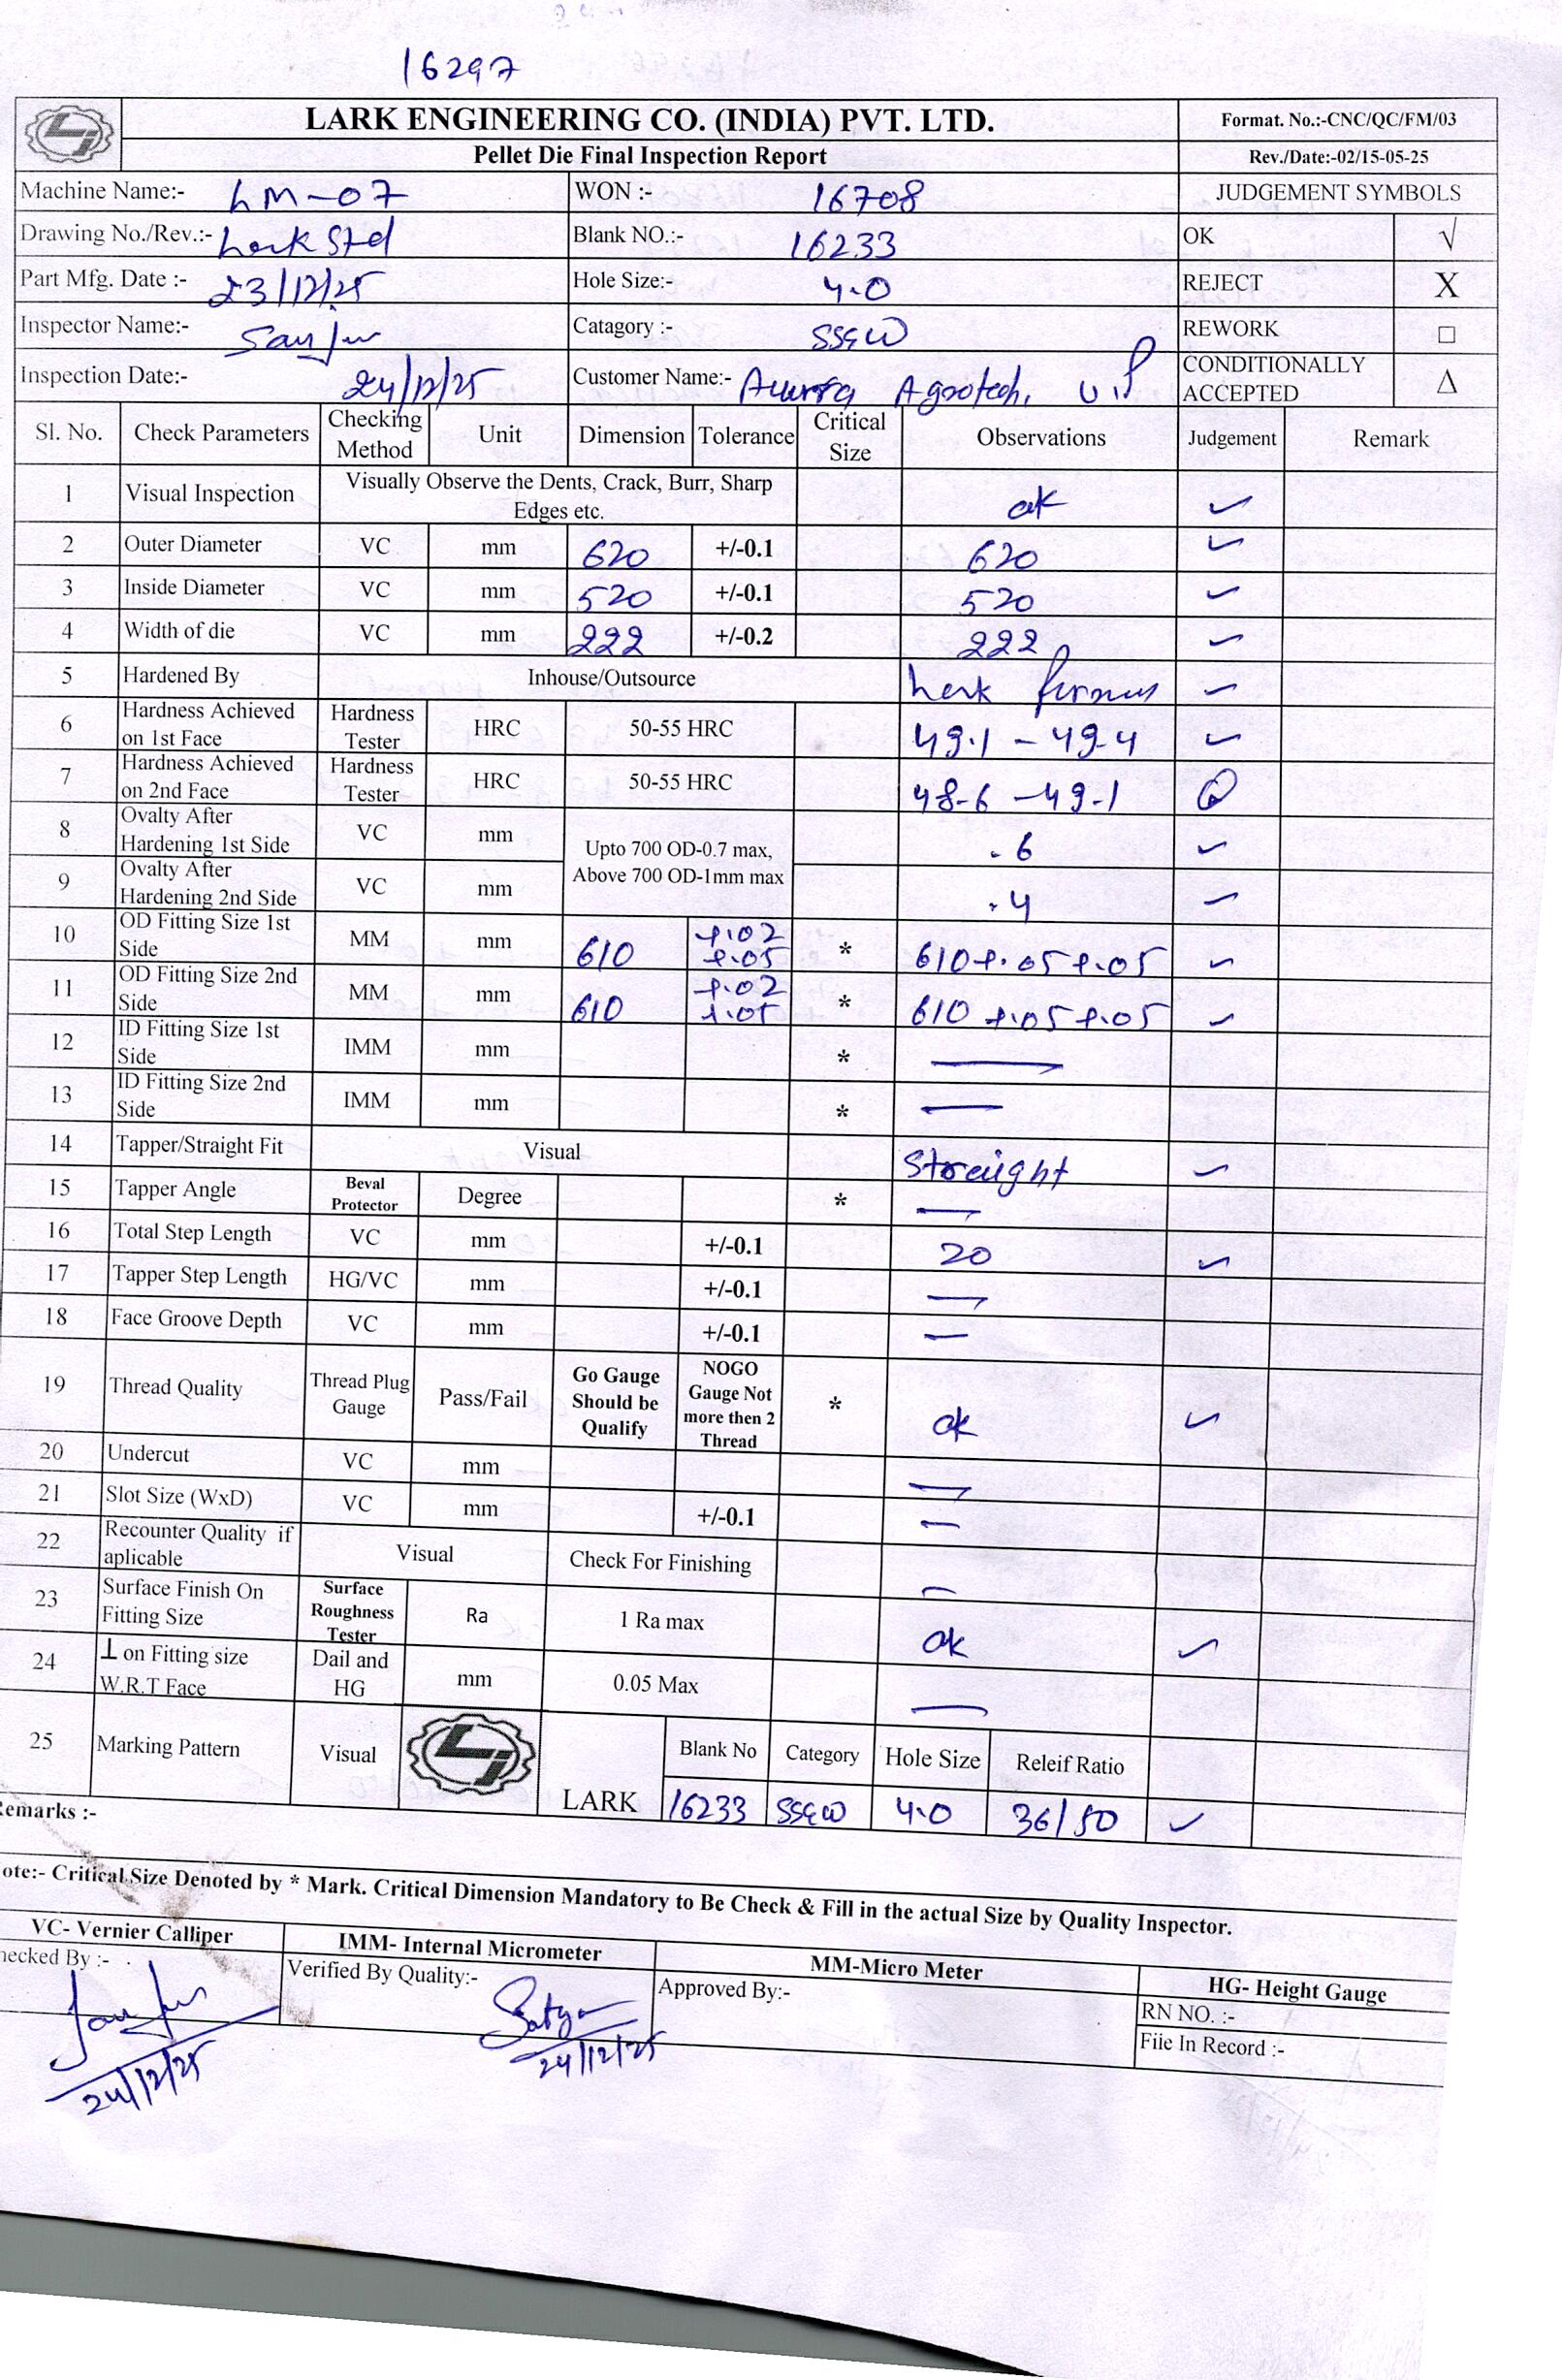 16297
LARK ENGINEERING CO. (INDIA) PVT. LTD. Format. No.:-CNC/QC/FM/03
Pellet Die Final Inspection Report Rev./Date:-02/15-05-25
Machine Name:- LM-07 WON :- 16708 JUDGEMENT SYMBOLS
Drawing No./Rev.:- Lark Std Blank NO.:- 16233 OK √
Part Mfg. Date :- 23/12/25 Hole Size:- 4.0 REJECT X
Inspector Name:- Catagory :- REWORK □
Inspection Date:- 24/12/25 Customer Name:- Agrotech, CONDITIONALLY ACCEPTED Δ
Sl. No. Check Parameters Checking Method Unit Dimension Tolerance Critical Size Observations Judgement Remark
1 Visual Inspection Visually Observe the Dents, Crack, Burr, Sharp Edges etc. ok ✓
2 Outer Diameter VC mm 620 +/-0.1 620 ✓
3 Inside Diameter VC mm 520 +/-0.1 520 ✓
4 Width of die VC mm 222 +/-0.2 222 ✓
5 Hardened By Inhouse/Outsource Lark ✓
6 Hardness Achieved on 1st Face Hardness Tester HRC 50-55 HRC 49.1 - 49.4 ✓
7 Hardness Achieved on 2nd Face Hardness Tester HRC 50-55 HRC 48.6 - 49.1
8 Ovalty After Hardening 1st Side VC mm Upto 700 OD-0.7 max, Above 700 OD-1mm max .6 ✓
9 Ovalty After Hardening 2nd Side VC mm .4 ✓
10 OD Fitting Size 1st Side MM mm 610 +.02 +.05 * 610 +.05 +.05 ✓
11 OD Fitting Size 2nd Side MM mm 610 +.02 +.05 * 610 +.05 +.05 ✓
12 ID Fitting Size 1st Side IMM mm * —
13 ID Fitting Size 2nd Side IMM mm * —
14 Tapper/Straight Fit Visual Straight ✓
15 Tapper Angle Beval Protector Degree * —
16 Total Step Length VC mm +/-0.1 20 ✓
17 Tapper Step Length HG/VC mm +/-0.1 —
18 Face Groove Depth VC mm +/-0.1 —
19 Thread Quality Thread Plug Gauge Pass/Fail Go Gauge Should be Qualify NOGO Gauge Not more then 2 Thread * ok ✓
20 Undercut VC mm —
21 Slot Size (WxD) VC mm +/-0.1 —
22 Recounter Quality if aplicable Visual Check For Finishing —
23 Surface Finish On Fitting Size Surface Roughness Tester Ra 1 Ra max ok ✓
24 ⊥ on Fitting size W.R.T Face Dail and HG mm 0.05 Max —
25 Marking Pattern Visual LARK Blank No Category Hole Size Releif Ratio
16233 4.0 36/50 ✓
emarks :-
ote:- Critical Size Denoted by * Mark. Critical Dimension Mandatory to Be Check & Fill in the actual Size by Quality Inspector.
VC- Vernier Calliper IMM- Internal Micrometer MM-Micro Meter HG- Height Gauge
hecked By :- Verified By Quality:- Satya Approved By:- RN NO. :-
File In Record :-
24/12/25 24/12/25